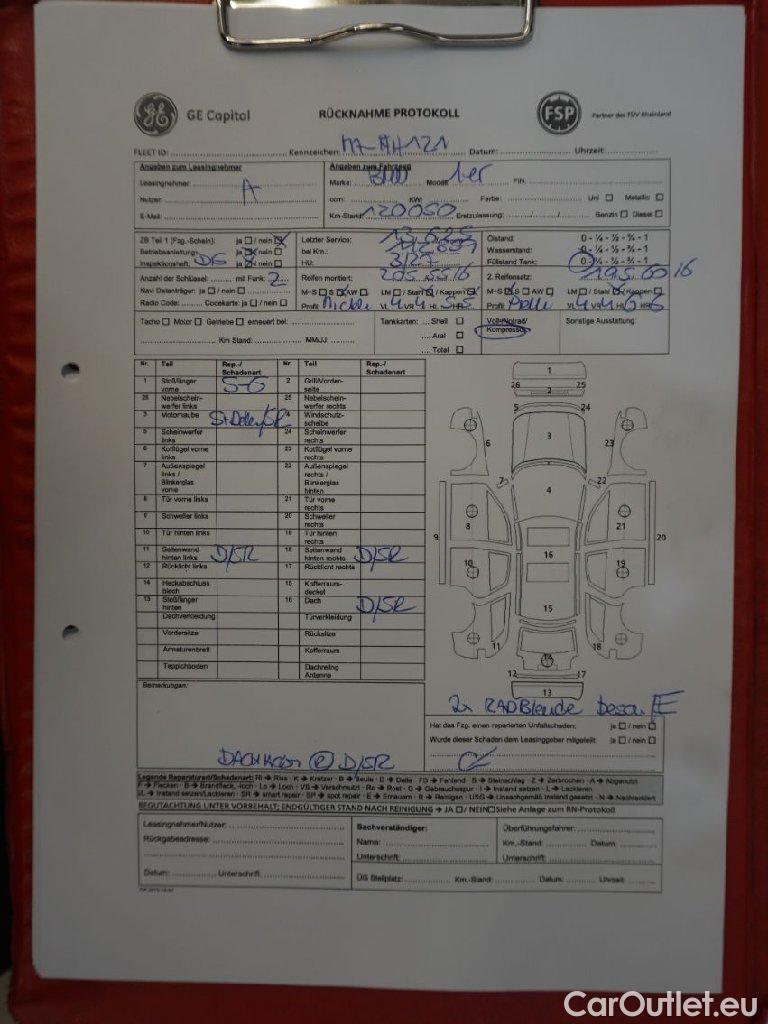 GE Capital RÜCKNAHME PROTOKOLL FSP Partner des TÜV Rheinland
FLEET ID: Kennzeichen: Datum: Uhrzeit:
Angaben zum Leasingnehmer Angaben zum Fahrzeug
Leasingnehmer: A Marke: BMW Modell: 1er FIN:
Nutzer: ccm: KW: Farbe: Uni ☐ Metallic ☐
E-Mail: Km-Stand: 120050 Erstzulassung: Benzin ☐ Diesel ☐
ZB Teil 1 (Fzg.-Schein): ja ☐ / nein ☒ Letzter Service: Ölstand: 0 - ¼ - ½ - ¾ - 1
Betriebsanleitung: ja ☒ / nein ☐ bei Km.: Wasserstand: 0 - ¼ - ½ - ¾ - 1
Inspektionsheft: DS ja ☒ / nein ☐ HU: Füllstand Tank: 0 - ¼ - ½ - ¾ - 1
Anzahl der Schlüssel: mit Funk: 2 Reifen montiert: 205 55 16 2. Reifensatz: 195 60 16
Navi Datenträger: ja ☐ / nein ☐ M-S ☐ S ☒ AW ☐ LM ☐ / Stahl ☒ / Kappen ☒ M-S ☒ S ☐ AW ☐ LM ☐ / Stahl ☒ / Kappen ☐
Radio Code: Codekarte: ja ☐ / nein ☐ Profil VL 4 VR 4 HL 5 HR 5 Profil VL 4 VR 4 HL 6 HR 6
Tacho ☐ Motor ☐ Getriebe ☐ erneuert bei: Tankkarten: Shell ☐ Voll-/Notrad/ Sonstige Ausstattung:
Aral ☐ Kompressor
Km Stand: MM/JJ: Total ☐
Nr. Teil Rep.-/ Schadenart Nr. Teil Rep.-/ Schadenart
1 Stoßfänger vorne S-G 2 Grill/Vorderseite
26 Nebelscheinwerfer links 25 Nebelscheinwerfer rechts
3 Motorhaube St Dellen/SR 4 Windschutzscheibe
5 Scheinwerfer links 24 Scheinwerfer rechts
6 Kotflügel vorne links 23 Kotflügel vorne rechts
7 Außenspiegel links / Blinkerglas vorne 22 Außenspiegel rechts / Blinkerglas hinten
8 Tür vorne links 21 Tür vorne rechts
9 Schweller links 20 Schweller rechts
10 Tür hinten links 19 Tür hinten rechts
11 Seitenwand hinten links D/SR 18 Seitenwand hinten rechts D/SR
12 Rücklicht links 17 Rücklicht rechts
14 Heckabschlussblech 15 Kofferraumdeckel
13 Stoßfänger hinten 16 Dach D/SR
Dachverkleidung Türverkleidung
Vordersitze Rücksitze
Armaturenbrett Kofferraum
Teppichboden Dachreling Antenne
1
26 25
2
5 24
6 3 23
7 22
4
8 21
9 16 20
10 19
15
11 18
14
12 17
13
Bemerkungen:
2x RADBlende
Hat das Fzg. einen reparierten Unfallschaden: ja ☐ / nein ☐
Wurde dieser Schaden dem Leasinggeber mitgeteilt: ja ☐ / nein ☐
D/SR
Legende Reparaturart/Schadenart: RI → Riss · K → Kratzer · B → Beule · D → Delle · FG → Fehlend · S → Steinschlag · Z → Zerbrochen · A → Abgenutzt
BEGUTACHTUNG UNTER VORBEHALT; ENDGÜLTIGER STAND NACH REINIGUNG → JA ☐ / NEIN ☐ Siehe Anlage zum RN-Protokoll
Leasingnehmer/Nutzer: Sachverständiger: Überführungsfahrer:
Rückgabeadresse: Name: Km.-Stand: Datum:
Unterschrift: Unterschrift:
Datum: Unterschrift: ÜG Stellplatz: Km.-Stand: Datum: Uhrzeit:
CarOutlet.eu